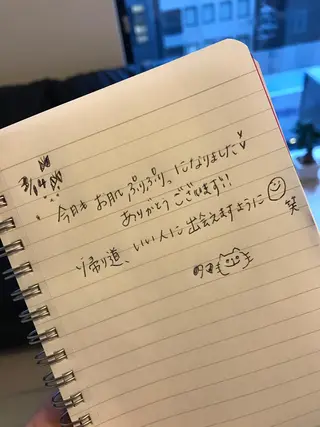 3/14
今日も お肌 ぷりぷりっになりました♡
ありがとうございます!!
帰り道、いい人に出会えますように☺笑